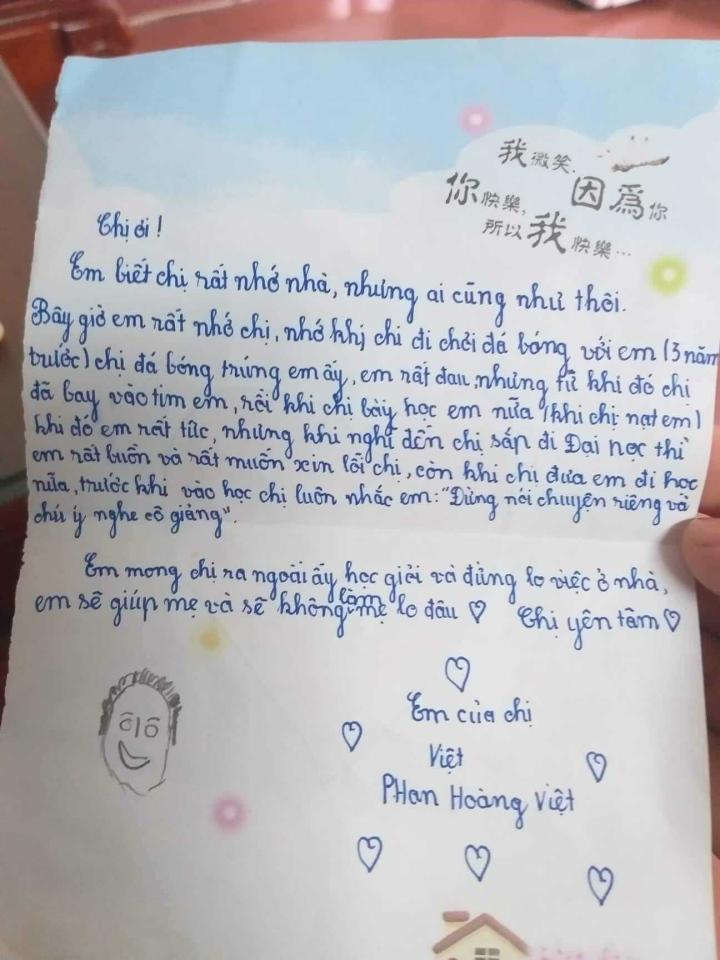 我微笑,
因為你
你快樂,
所以我快樂…
Chị ơi!
Em biết chị rất nhớ nhà, nhưng ai cũng như thôi.
Bây giờ em rất nhớ chị, nhớ khị chị đi chơi đá bóng với em (3 năm
trước) chị đá bóng trúng em ấy, em rất đau, nhưng từ khi đó chị
đã bay vào tim em, rồi khi chị bảy học em nữa (khi chị nạt em)
khi đó em rất tức, nhưng khi nghĩ đến chị sắp đi Đại học thì
em rất buồn và rất muốn xin lỗi chị, còn khi chị đưa em đi học
nữa, trước khi vào học chị luôn nhắc em: "Đừng nói chuyện riêng và
chú ý nghe cô giảng".
Em mong chị ra ngoài ấy học giỏi và đừng lo việc ở nhà,
em sẽ giúp mẹ và sẽ không làm mẹ lo đâu ♡ Chị yên tâm ♡
Em của chị
Việt
PHan Hoàng Việt